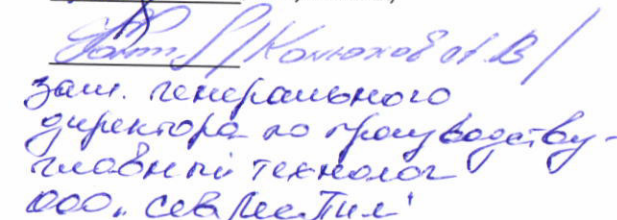 /Конюхов А.В/
зам. генерального
директора по производству-
главный технолог
ООО "СевЛесПил"